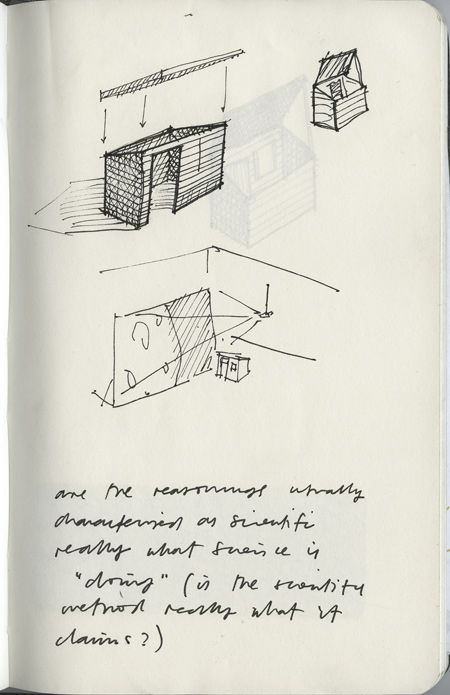 are the reasonings usually
characterised as scientific
really what science is
"doing" (is the scientific
method really what it
claims?)